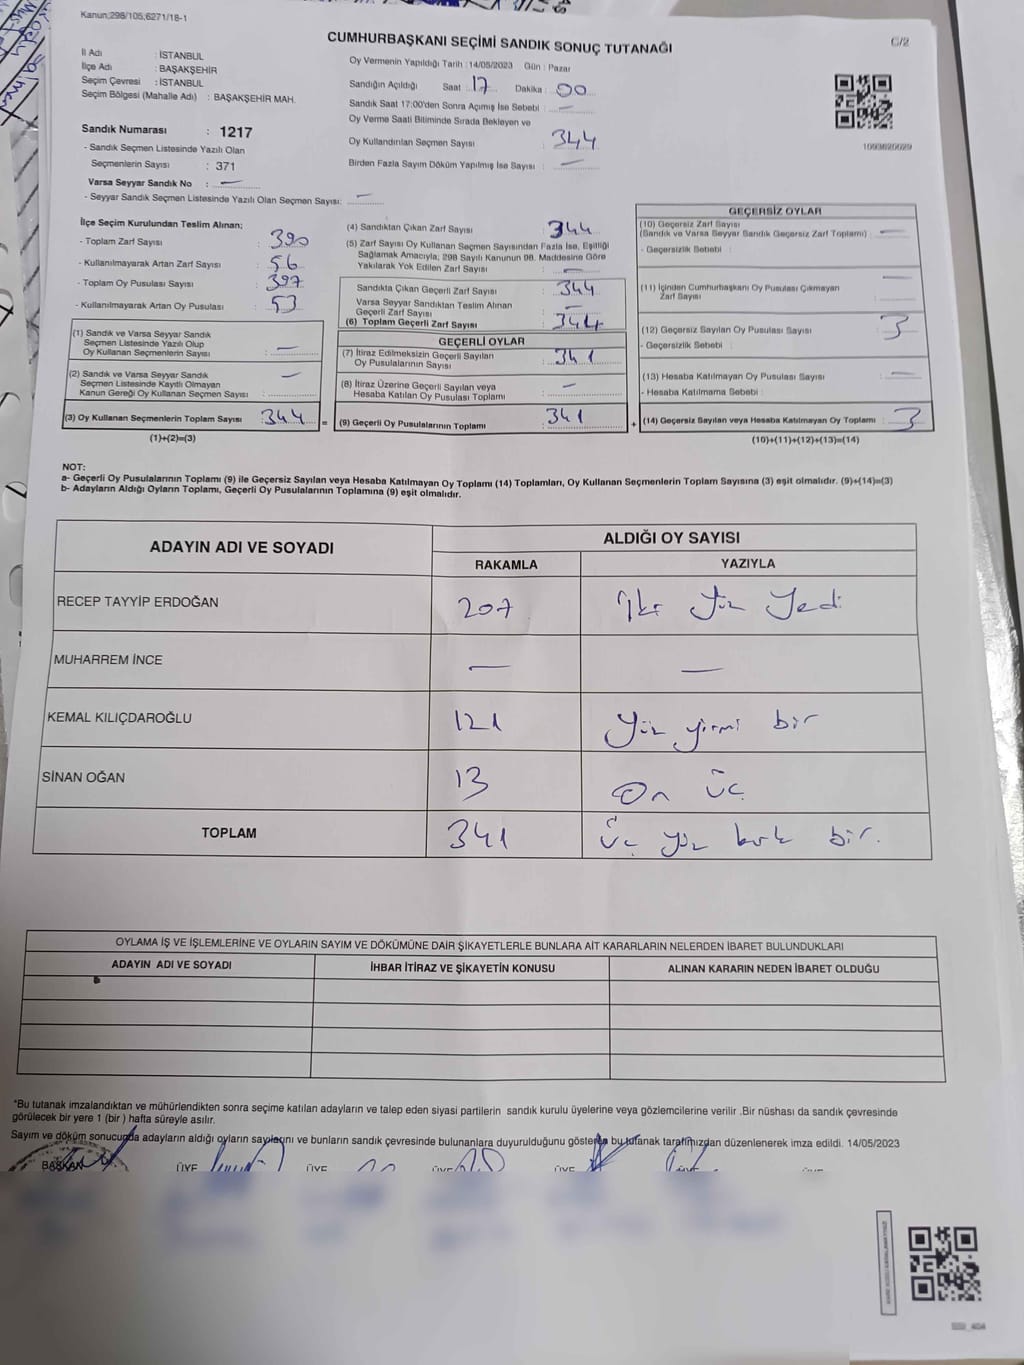 Kanun;298/105;6271/18-1
C/2
CUMHURBAŞKANI SEÇİMİ SANDIK SONUÇ TUTANAĞI
İl Adı : İSTANBUL
İlçe Adı : BAŞAKŞEHİR
Seçim Çevresi : İSTANBUL
Seçim Bölgesi (Mahalle Adı) : BAŞAKŞEHİR MAH.
Sandık Numarası : 1217
- Sandık Seçmen Listesinde Yazılı Olan
Seçmenlerin Sayısı : 371
Varsa Seyyar Sandık No : —
- Seyyar Sandık Seçmen Listesinde Yazılı Olan Seçmen Sayısı: —
Oy Vermenin Yapıldığı Tarih : 14/05/2023 Gün : Pazar
Sandığın Açıldığı Saat : 17 Dakika : 00
Sandık Saat 17:00'den Sonra Açımış İse Sebebi : —
Oy Verme Saati Bitiminde Sırada Bekleyen ve
Oy Kullandırılan Seçmen Sayısı : 344
Birden Fazla Sayım Döküm Yapılmış İse Sayısı : —
1093620029
İlçe Seçim Kurulundan Teslim Alınan;
- Toplam Zarf Sayısı : 390
- Kullanılmayarak Artan Zarf Sayısı : 56
- Toplam Oy Pusulası Sayısı : 397
- Kullanılmayarak Artan Oy Pusulası : 53
(1) Sandık ve Varsa Seyyar Sandık
Seçmen Listesinde Yazılı Olup
Oy Kullanan Seçmenlerin Sayısı : —
(2) Sandık ve Varsa Seyyar Sandık
Seçmen Listesinde Kayıtlı Olmayan
Kanun Gereği Oy Kullanan Seçmen Sayısı : —
(3) Oy Kullanan Seçmenlerin Toplam Sayısı : 344
(1)+(2)=(3)
(4) Sandıktan Çıkan Zarf Sayısı : 344
(5) Zarf Sayısı Oy Kullanan Seçmen Sayısından Fazla İse, Eşitliği
Sağlamak Amacıyla, 298 Sayılı Kanunun 98. Maddesine Göre
Yakılarak Yok Edilen Zarf Sayısı : —
Sandıkta Çıkan Geçerli Zarf Sayısı : 344
Varsa Seyyar Sandıktan Teslim Alınan
Geçerli Zarf Sayısı : —
(6) Toplam Geçerli Zarf Sayısı : 344
GEÇERLİ OYLAR
(7) İtiraz Edilmeksizin Geçerli Sayılan
Oy Pusulalarının Sayısı : 341
(8) İtiraz Üzerine Geçerli Sayılan veya
Hesaba Katılan Oy Pusulası Toplamı : —
= (9) Geçerli Oy Pusulalarının Toplamı : 341
GEÇERSİZ OYLAR
(10) Geçersiz Zarf Sayısı
(Sandık ve Varsa Seyyar Sandık Geçersiz Zarf Toplamı) : —
- Geçersizlik Sebebi :
(11) İçinden Cumhurbaşkanı Oy Pusulası Çıkmayan
Zarf Sayısı : —
(12) Geçersiz Sayılan Oy Pusulası Sayısı : 3
- Geçersizlik Sebebi :
(13) Hesaba Katılmayan Oy Pusulası Sayısı : —
- Hesaba Katılmama Sebebi :
+ (14) Geçersiz Sayılan veya Hesaba Katılmayan Oy Toplamı : 3
(10)+(11)+(12)+(13)=(14)
NOT:
a- Geçerli Oy Pusulalarının Toplamı (9) ile Geçersiz Sayılan veya Hesaba Katılmayan Oy Toplamı (14) Toplamları, Oy Kullanan Seçmenlerin Toplam Sayısına (3) eşit olmalıdır. (9)+(14)=(3)
b- Adayların Aldığı Oyların Toplamı, Geçerli Oy Pusulalarının Toplamına (9) eşit olmalıdır.
ADAYIN ADI VE SOYADI ALDIĞI OY SAYISI
RAKAMLA YAZIYLA
RECEP TAYYİP ERDOĞAN 207 İki Yüz Yedi
MUHARREM İNCE — —
KEMAL KILIÇDAROĞLU 121 Yüz yirmi bir
SİNAN OĞAN 13 On üç
TOPLAM 341 Üç yüz kırk bir.
OYLAMA İŞ VE İŞLEMLERİNE VE OYLARIN SAYIM VE DÖKÜMÜNE DAİR ŞİKAYETLERLE BUNLARA AİT KARARLARIN NELERDEN İBARET BULUNDUKLARI
ADAYIN ADI VE SOYADI İHBAR İTİRAZ VE ŞİKAYETİN KONUSU ALINAN KARARIN NEDEN İBARET OLDUĞU
*Bu tutanak imzalandıktan ve mühürlendikten sonra seçime katılan adayların ve talep eden siyasi partilerin sandık kurulu üyelerine veya gözlemcilerine verilir .Bir nüshası da sandık çevresinde
görülecek bir yere 1 (bir ) hafta süreyle asılır.
Sayım ve döküm sonucunda adayların aldığı oyların sayılarını ve bunların sandık çevresinde bulunanlara duyurulduğunu gösteren bu tutanak tarafımızdan düzenlenerek imza edildi. 14/05/2023
BAŞKAN ÜYE ÜYE ÜYE ÜYE ÜYE